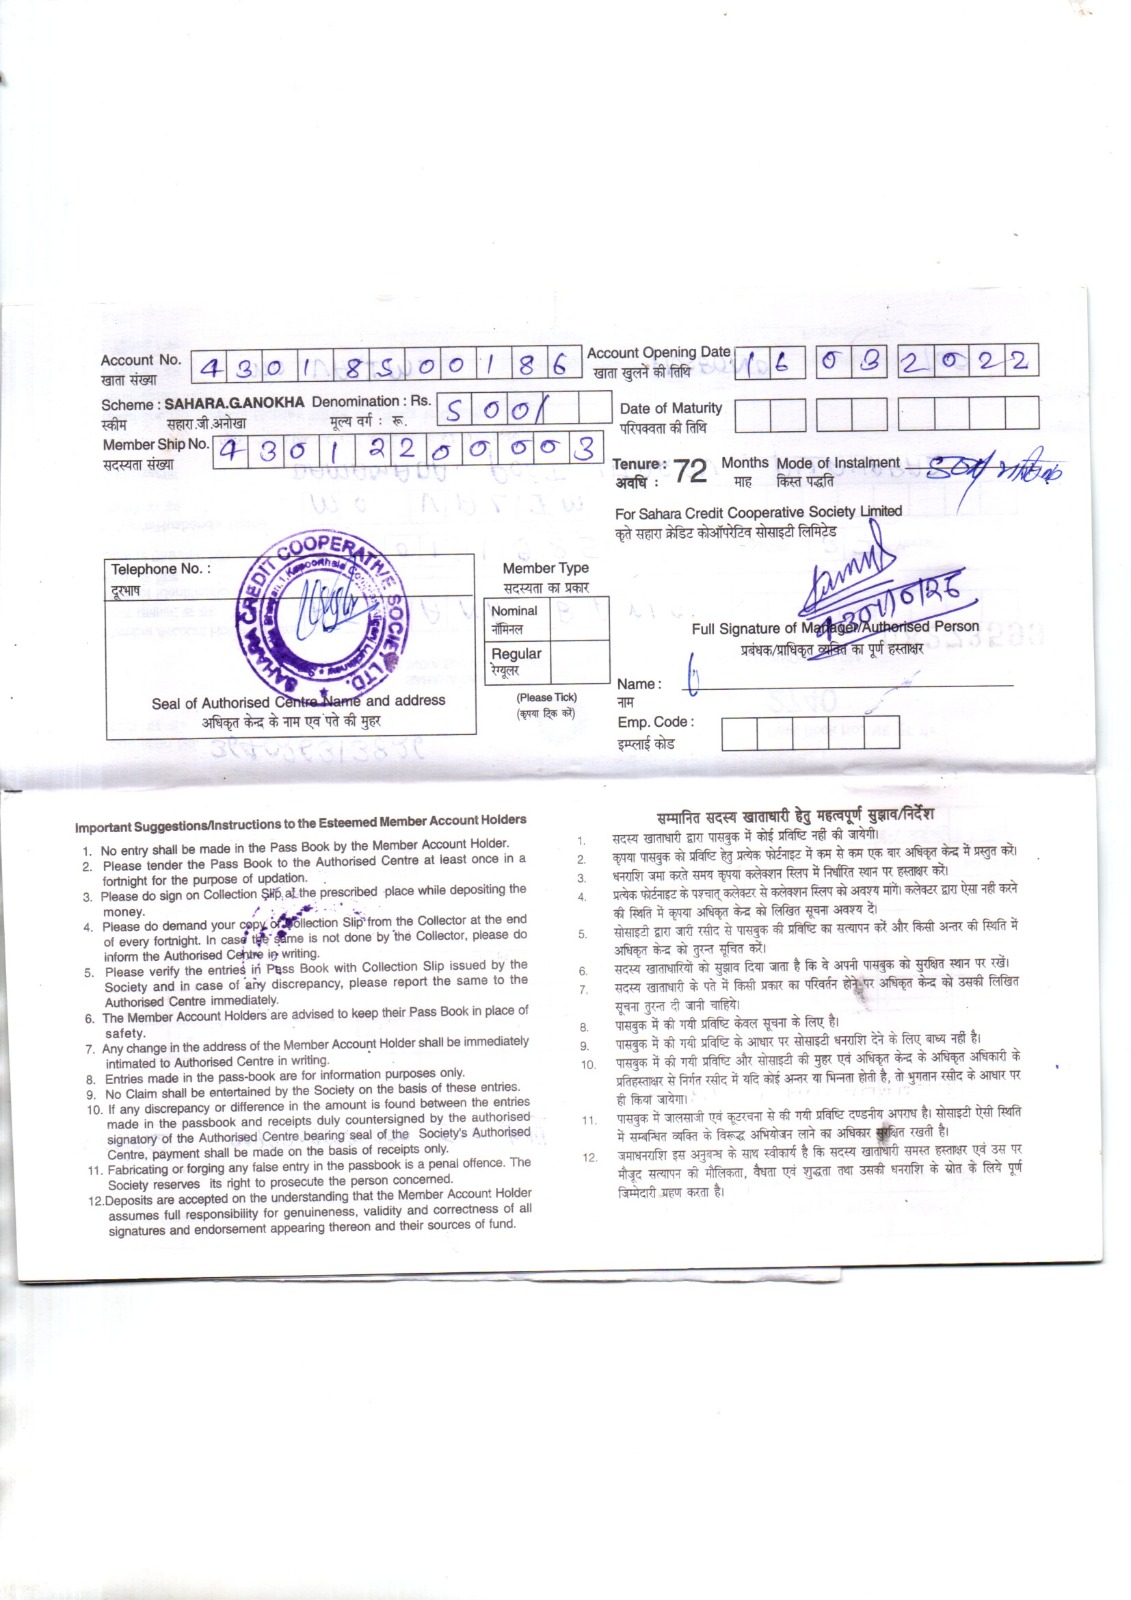 Account No. 43018500186 Account Opening Date 16 03 2022
खाता संख्या खाता खुलने की तिथि
Scheme : SAHARA.G.ANOKHA Denomination : Rs. 500/ Date of Maturity
स्कीम सहारा.जी.अनोखा मूल्य वर्ग : रू. परिपक्वता की तिथि
Member Ship No. 43012200003
सदस्यता संख्या
Tenure : 72 Months Mode of Instalment
अवधि : माह किस्त पद्धति
For Sahara Credit Cooperative Society Limited
कृते सहारा क्रेडिट कोऑपरेटिव सोसाइटी लिमिटेड
Telephone No. :
दूरभाष
SAHARA CREDIT COOPERATIVE SOCIETY LTD.
Seal of Authorised Centre Name and address
अधिकृत केन्द्र के नाम एवं पते की मुहर
Member Type
सदस्यता का प्रकार
Nominal
नॉमिनल
Regular
रेग्यूलर
(Please Tick)
(कृपया टिक करें)
Full Signature of Manager/Authorised Person
प्रबंधक/प्राधिकृत व्यक्ति का पूर्ण हस्ताक्षर
Name :
नाम
Emp. Code :
इम्प्लाई कोड
Important Suggestions/Instructions to the Esteemed Member Account Holders
1. No entry shall be made in the Pass Book by the Member Account Holder.
2. Please tender the Pass Book to the Authorised Centre at least once in a
fortnight for the purpose of updation.
3. Please do sign on Collection Slip at the prescribed place while depositing the
money.
4. Please do demand your copy of Collection Slip from the Collector at the end
of every fortnight. In case the same is not done by the Collector, please do
inform the Authorised Centre in writing.
5. Please verify the entries in Pass Book with Collection Slip issued by the
Society and in case of any discrepancy, please report the same to the
Authorised Centre immediately.
6. The Member Account Holders are advised to keep their Pass Book in place of
safety.
7. Any change in the address of the Member Account Holder shall be immediately
intimated to Authorised Centre in writing.
8. Entries made in the pass-book are for information purposes only.
9. No Claim shall be entertained by the Society on the basis of these entries.
10. If any discrepancy or difference in the amount is found between the entries
made in the passbook and receipts duly countersigned by the authorised
signatory of the Authorised Centre bearing seal of the Society's Authorised
Centre, payment shall be made on the basis of receipts only.
11. Fabricating or forging any false entry in the passbook is a penal offence. The
Society reserves its right to prosecute the person concerned.
12.Deposits are accepted on the understanding that the Member Account Holder
assumes full responsibility for genuineness, validity and correctness of all
signatures and endorsement appearing thereon and their sources of fund.
सम्मानित सदस्य खाताधारी हेतु महत्वपूर्ण सुझाव/निर्देश
1. सदस्य खाताधारी द्वारा पासबुक में कोई प्रविष्टि नही की जायेगी।
2. कृपया पासबुक को प्रविष्टि हेतु प्रत्येक फोर्टनाइट में कम से कम एक बार अधिकृत केन्द्र में प्रस्तुत करें।
3. धनराशि जमा करते समय कृपया कलेक्शन स्लिप में निर्धारित स्थान पर हस्ताक्षर करें।
4. प्रत्येक फोर्टनाइट के पश्चात् कलेक्टर से कलेक्शन स्लिप को अवश्य मांगें। कलेक्टर द्वारा ऐसा नही करने
की स्थिति में कृपया अधिकृत केन्द्र को लिखित सूचना अवश्य दें।
5. सोसाइटी द्वारा जारी रसीद से पासबुक की प्रविष्टि का सत्यापन करें और किसी अन्तर की स्थिति में
अधिकृत केन्द्र को तुरन्त सूचित करें।
6. सदस्य खाताधारियों को सुझाव दिया जाता है कि वे अपनी पासबुक को सुरक्षित स्थान पर रखें।
7. सदस्य खाताधारी के पते में किसी प्रकार का परिवर्तन होने पर अधिकृत केन्द्र को उसकी लिखित
सूचना तुरन्त दी जानी चाहिये।
8. पासबुक में की गयी प्रविष्टि केवल सूचना के लिए है।
9. पासबुक में की गयी प्रविष्टि के आधार पर सोसाइटी धनराशि देने के लिए बाध्य नही है।
10. पासबुक में की गयी प्रविष्टि और सोसाइटी की मुहर एवं अधिकृत केन्द्र के अधिकृत अधिकारी के
प्रतिहस्ताक्षर से निर्गत रसीद में यदि कोई अन्तर या भिन्नता होती है, तो भुगतान रसीद के आधार पर
ही किया जायेगा।
11. पासबुक में जालसाजी एवं कूटरचना से की गयी प्रविष्टि दण्डनीय अपराध है। सोसाइटी ऐसी स्थिति
में सम्बन्धित व्यक्ति के विरूद्ध अभियोजन लाने का अधिकार सुरक्षित रखती है।
12. जमाधनराशि इस अनुबन्ध के साथ स्वीकार्य है कि सदस्य खाताधारी समस्त हस्ताक्षर एवं उस पर
मौजूद सत्यापन की मौलिकता, वैधता एवं शुद्धता तथा उसकी धनराशि के स्रोत के लिये पूर्ण
जिम्मेदारी ग्रहण करता है।